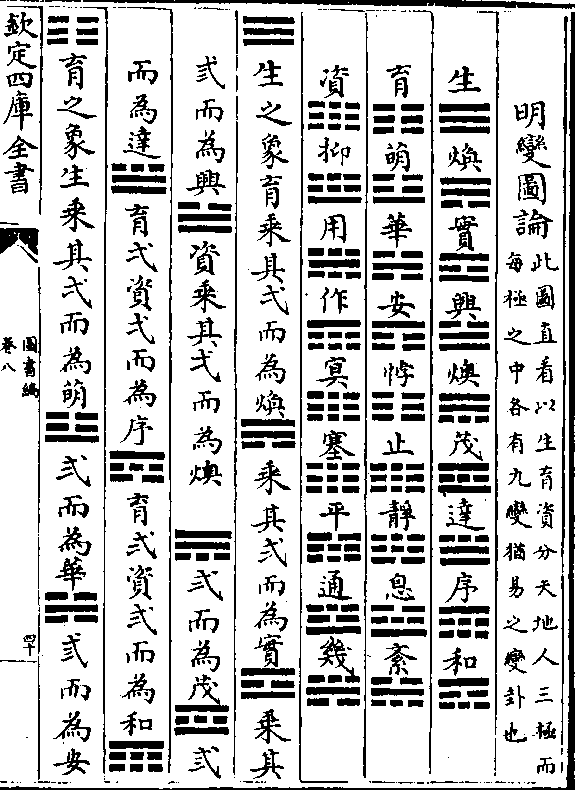 明變圖論此圖直看以生育資分天地人三極而
每極之中各有九變猶易之變卦也
生煥實興燠茂達序和
育萌華安悖止靜息紊
資抑用作冥塞平通幾
生之象育乘其弍而為煥乘其弍而為實乘其
弎而為興資乘其弌而為燠弍而為茂弎
而為達育弌資弌而為序育弌資弍而為和
育之象生乘其弌而為萌弍而為華弎而為安
欽定四庫全書
圖書編
卷八
四十